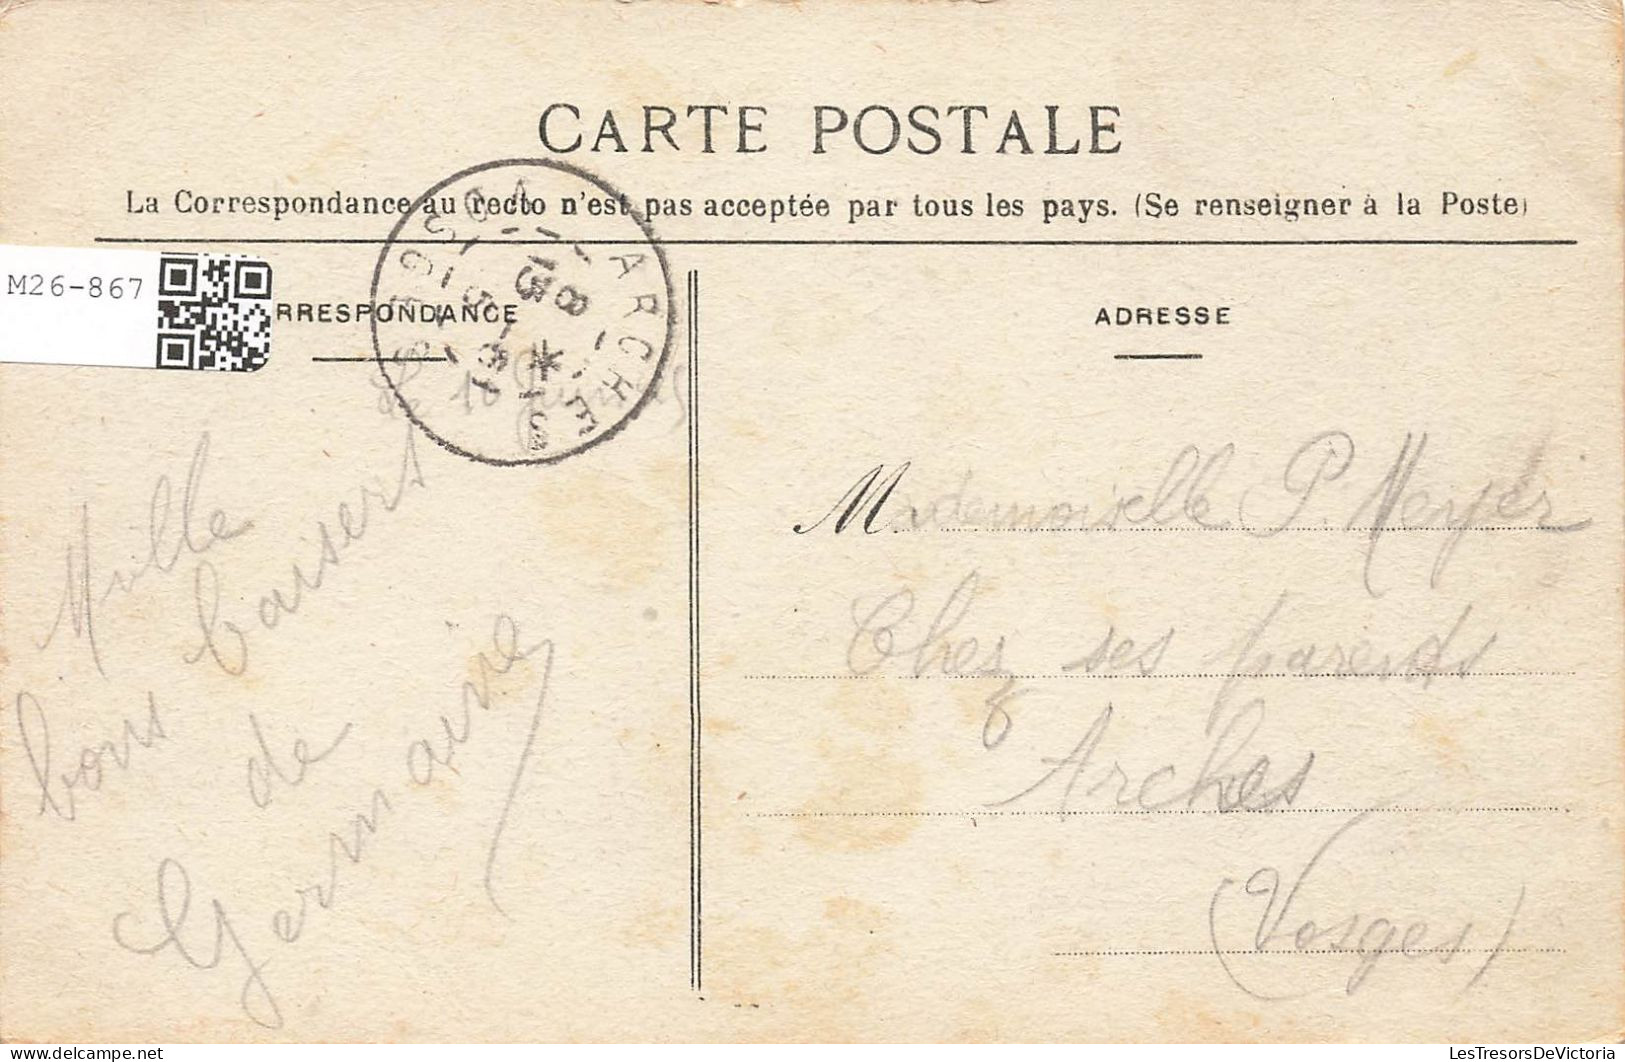 CARTE POSTALE
La Correspondance au recto n'est pas acceptée par tous les pays. (Se renseigner à la Poste)
M26-867
RRESPONDANCE
ADRESSE
ARCHES
VOSGES
Mille
bons baisers
de
Germaine
Mademoiselle P. Meyer
Chez ses parents
Arches
(Vosges)
LesTresorsDeVictoria